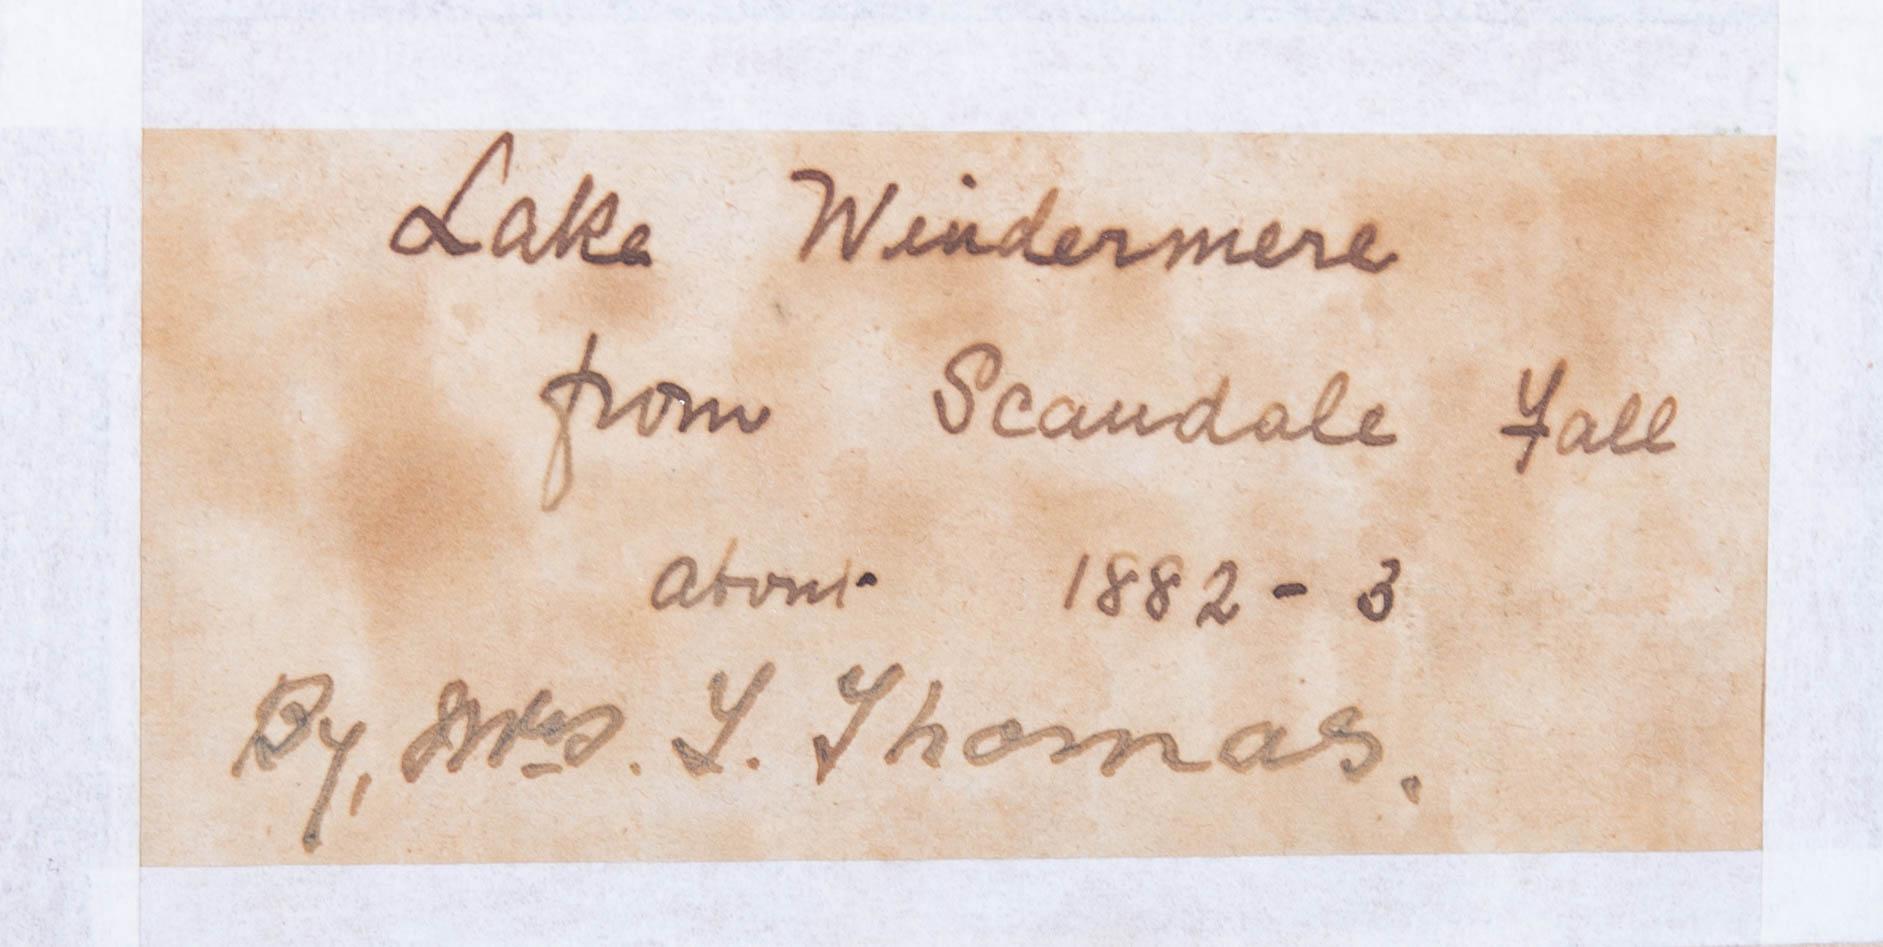 Lake Windermere
from Scandale Fall
about 1882-3
By, Mrs. T. Thomas.